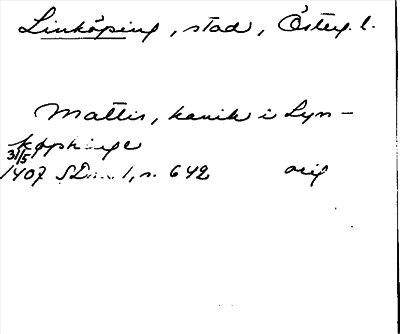 Linköping, stad, Österg. l.
Mattis, kanik i Lyn-
køphinge
31/5
1407 SD 1, n. 642 orig